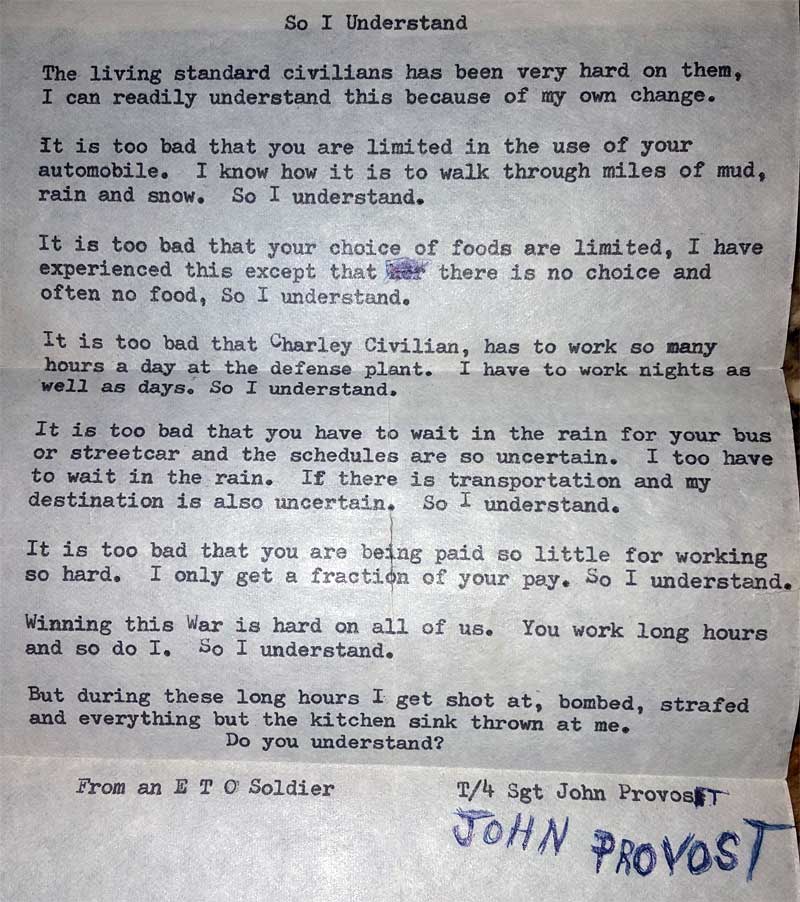 So I Understand
The living standard civilians has been very hard on them,
I can readily understand this because of my own change.
It is too bad that you are limited in the use of your
automobile. I know how it is to walk through miles of mud,
rain and snow. So I understand.
It is too bad that your choice of foods are limited, I have
experienced this except that there is no choice and
often no food, So I understand.
It is too bad that Charley Civilian, has to work so many
hours a day at the defense plant. I have to work nights as
well as days. So I understand.
It is too bad that you have to wait in the rain for your bus
or streetcar and the schedules are so uncertain. I too have
to wait in the rain. If there is transportation and my
destination is also uncertain. So I understand.
It is too bad that you are being paid so little for working
so hard. I only get a fraction of your pay. So I understand.
Winning this War is hard on all of us. You work long hours
and so do I. So I understand.
But during these long hours I get shot at, bombed, strafed
and everything but the kitchen sink thrown at me.
Do you understand?
From an E T O Soldier T/4 Sgt John Provost
JOHN PROVOST